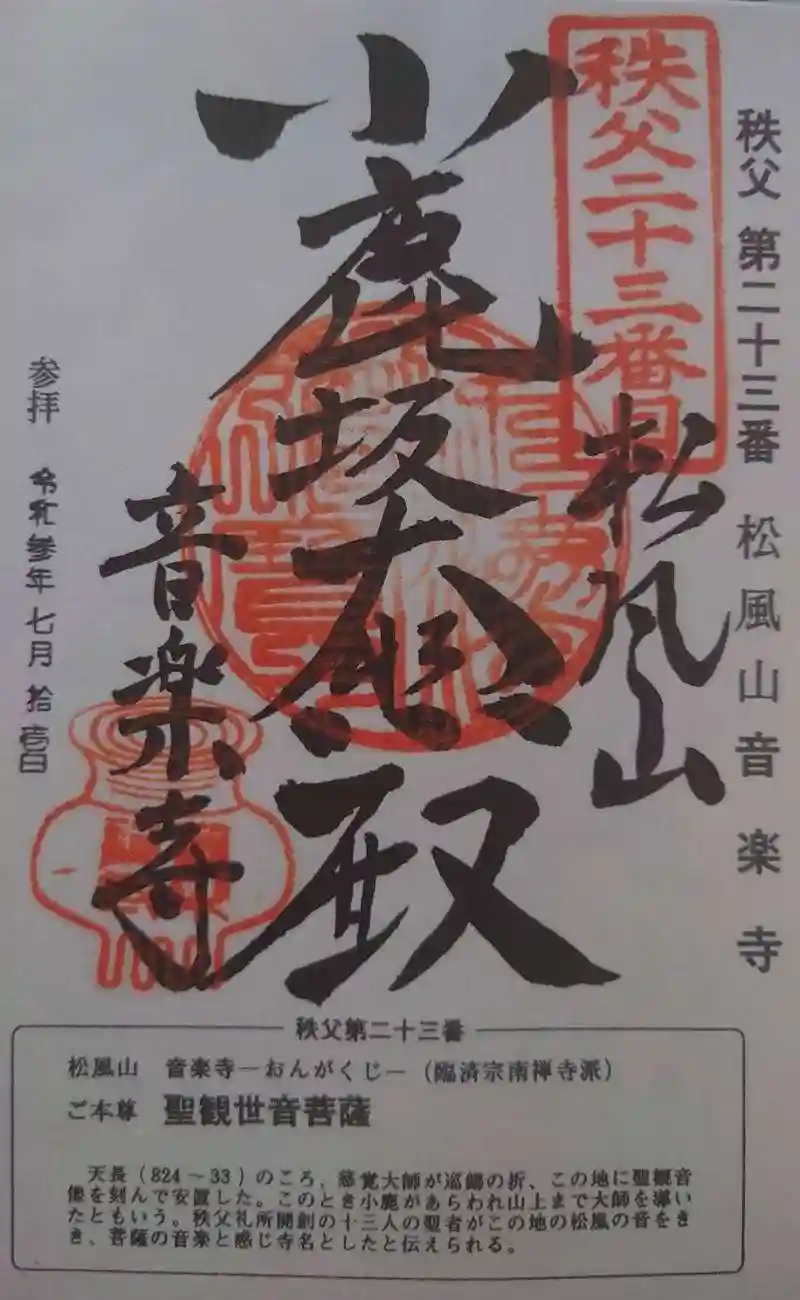 秩父 第二十三番 松風山音楽寺
秩父二十三番
松風山
小鹿坂
殿
音楽寺
参拝 令和参年七月拾壱日
秩父第二十三番
松風山 音楽寺—おんがくじ—（臨済宗南禅寺派）
ご本尊 聖観世音菩薩
天長（824～33）のころ、慈覚大師が巡錫の折、この地に聖観音
像を刻んで安置した。このとき小鹿があらわれ山上まで大師を導い
たともいう。秩父礼所開創の十三人の聖者がこの地の松風の音をき
き、菩薩の音楽と感じ寺名としたと伝えられる。